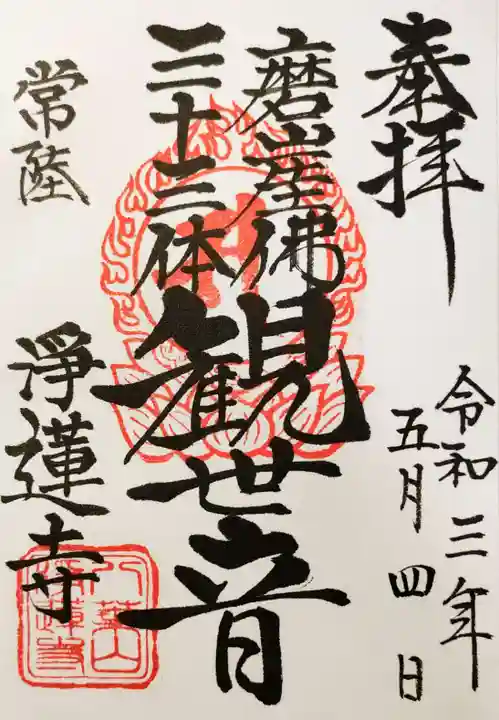 奉拝
令和三年
五月四日
磨崖佛
三十三体
観世音
常陸
淨蓮寺